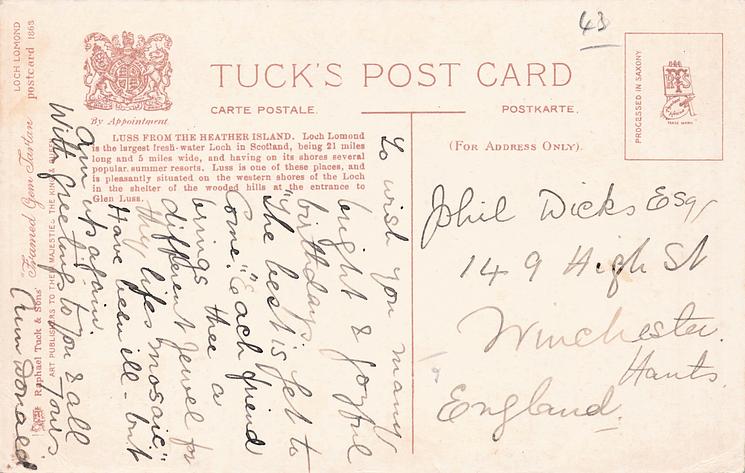 43
TUCK'S POST CARD
CARTE POSTALE.
POSTKARTE.
By Appointment.
(FOR ADDRESS ONLY).
PROCESSED IN SAXONY
TRADE MARK
LUSS FROM THE HEATHER ISLAND. Loch Lomond
is the largest fresh-water Loch in Scotland, being 21 miles
long and 5 miles wide, and having on its shores several
popular summer resorts. Luss is one of these places, and
is pleasantly situated on the western shores of the Loch
in the shelter of the wooded hills at the entrance to
Glen Luss.
LOCH LOMOND
postcard 1863
"Framed Gem" Tartan
Raphael Tuck & Sons'
ART PUBLISHERS TO THE MAJESTIES THE KING &
To wish you many
bright & joyful
birthdays.
"The best is yet to
Come." "Each friend
brings thee a
different jewel for
thy lifes mosaic."
Have been ill - but
am up again.
With greetings to you & all
Yours
Donald
Phil Dicks Esqr
149 High St
Winchester.
Hants.
England.